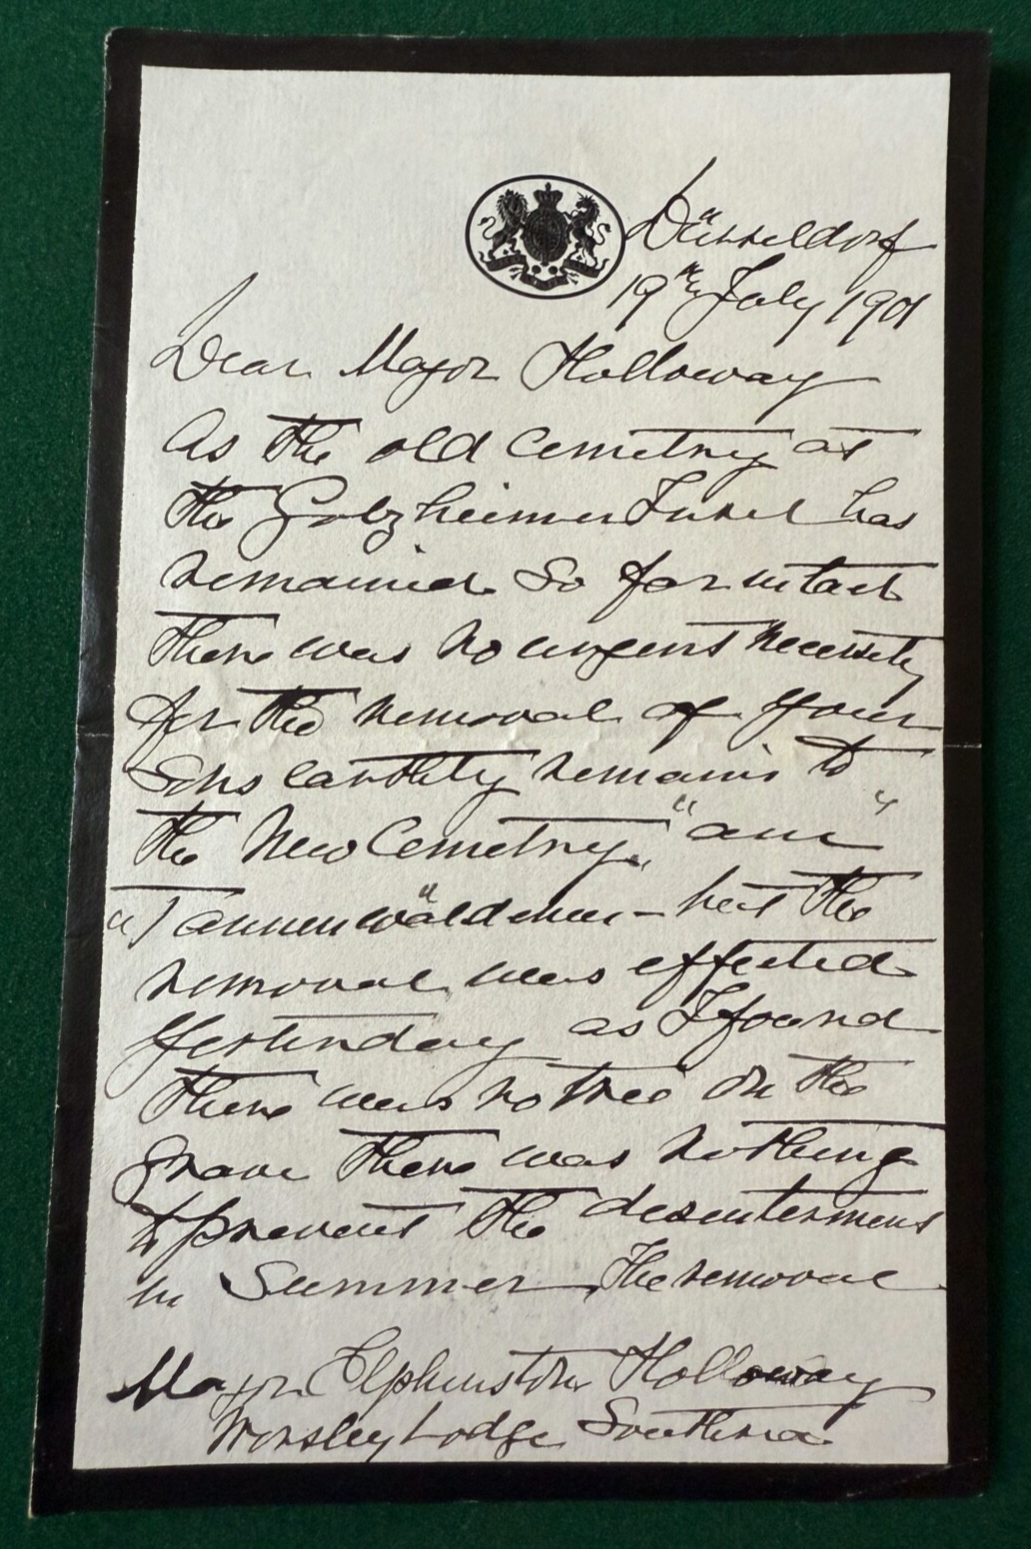 Düsseldorf
19th July 1901
Dear Major Holloway
As the old Cemetry at
the Golzheimer Insel has
remained so far intact
there was no urgent necessity
for the removal of your
Sons earthly remains to
the New Cemetry, "am"
"Tannenwäldchen – but the
removal was effected
Yesterday as I found
there was no tree on the
grave there was nothing
to prevent the desenterment
in Summer. The removal
Major Elphinston Holloway
Worsley Lodge Southsea